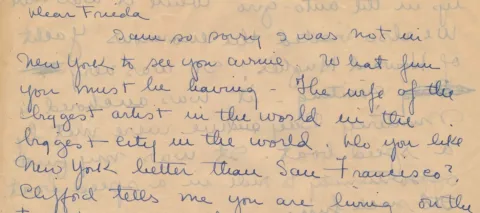 Dear Frieda
I am so sorry I was not in
New York to see you arrive. What fun
you must be having - The wife of the
biggest artist in the world in the
biggest city in the world. Do you like
New York better than San Francisco?
Clifford tells me you are living on the